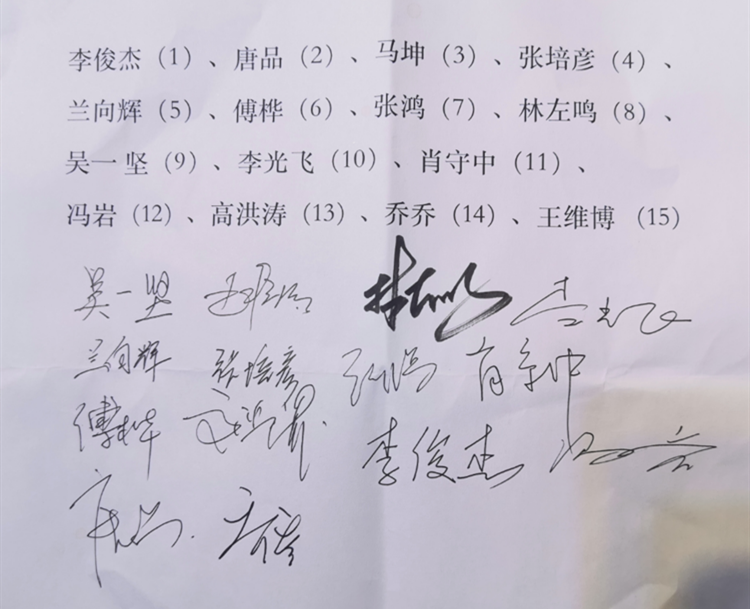 李俊杰（1）、唐品（2）、马坤（3）、张培彦（4）、
兰向辉（5）、傅桦（6）、张鸿（7）、林左鸣（8）、
吴一坚（9）、李光飞（10）、肖守中（11）、
冯岩（12）、高洪涛（13）、乔乔（14）、王维博（15）
吴一坚 林左鸣 李光飞
兰向辉 张培彦 张鸿 肖守中
傅桦 李俊杰 冯岩
唐品